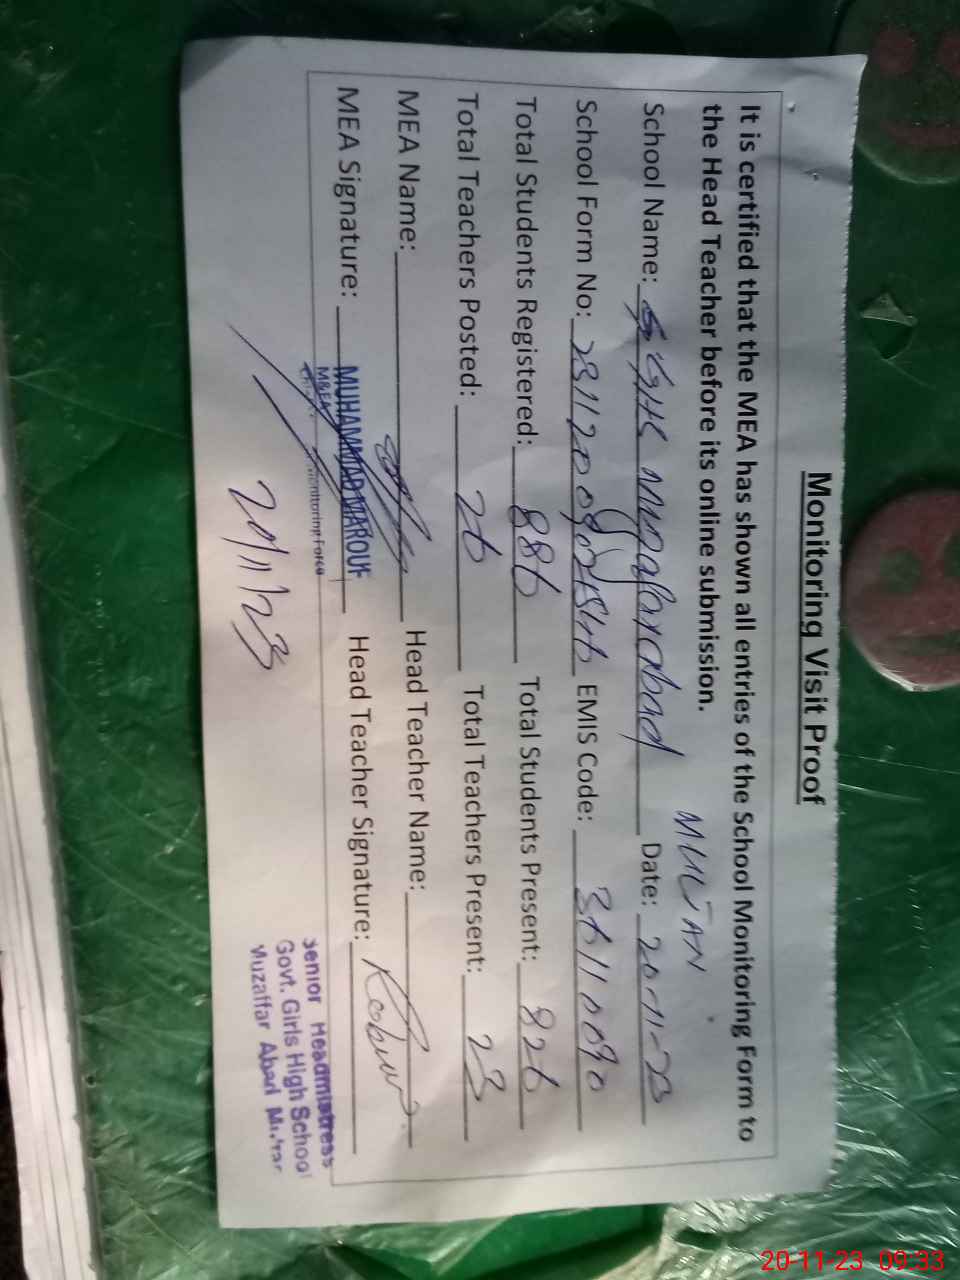 Monitoring Visit Proof
It is certified that the MEA has shown all entries of the School Monitoring Form to
the Head Teacher before its online submission.
MULTAN
School Name: GGHS Muzafarabad Date: 20-11-23
School Form No: EMIS Code: 36110090
Total Students Registered: 886 Total Students Present: 826
Total Teachers Posted: 26 Total Teachers Present: 23
MEA Name: Head Teacher Name:
MEA Signature: MUHAMMAD MAROUF Head Teacher Signature:
M&EA
Monitoring Force
20/11/23
Senior Headmistress
Govt. Girls High School
Muzaffar Abad Multan
20-11-23 09:33